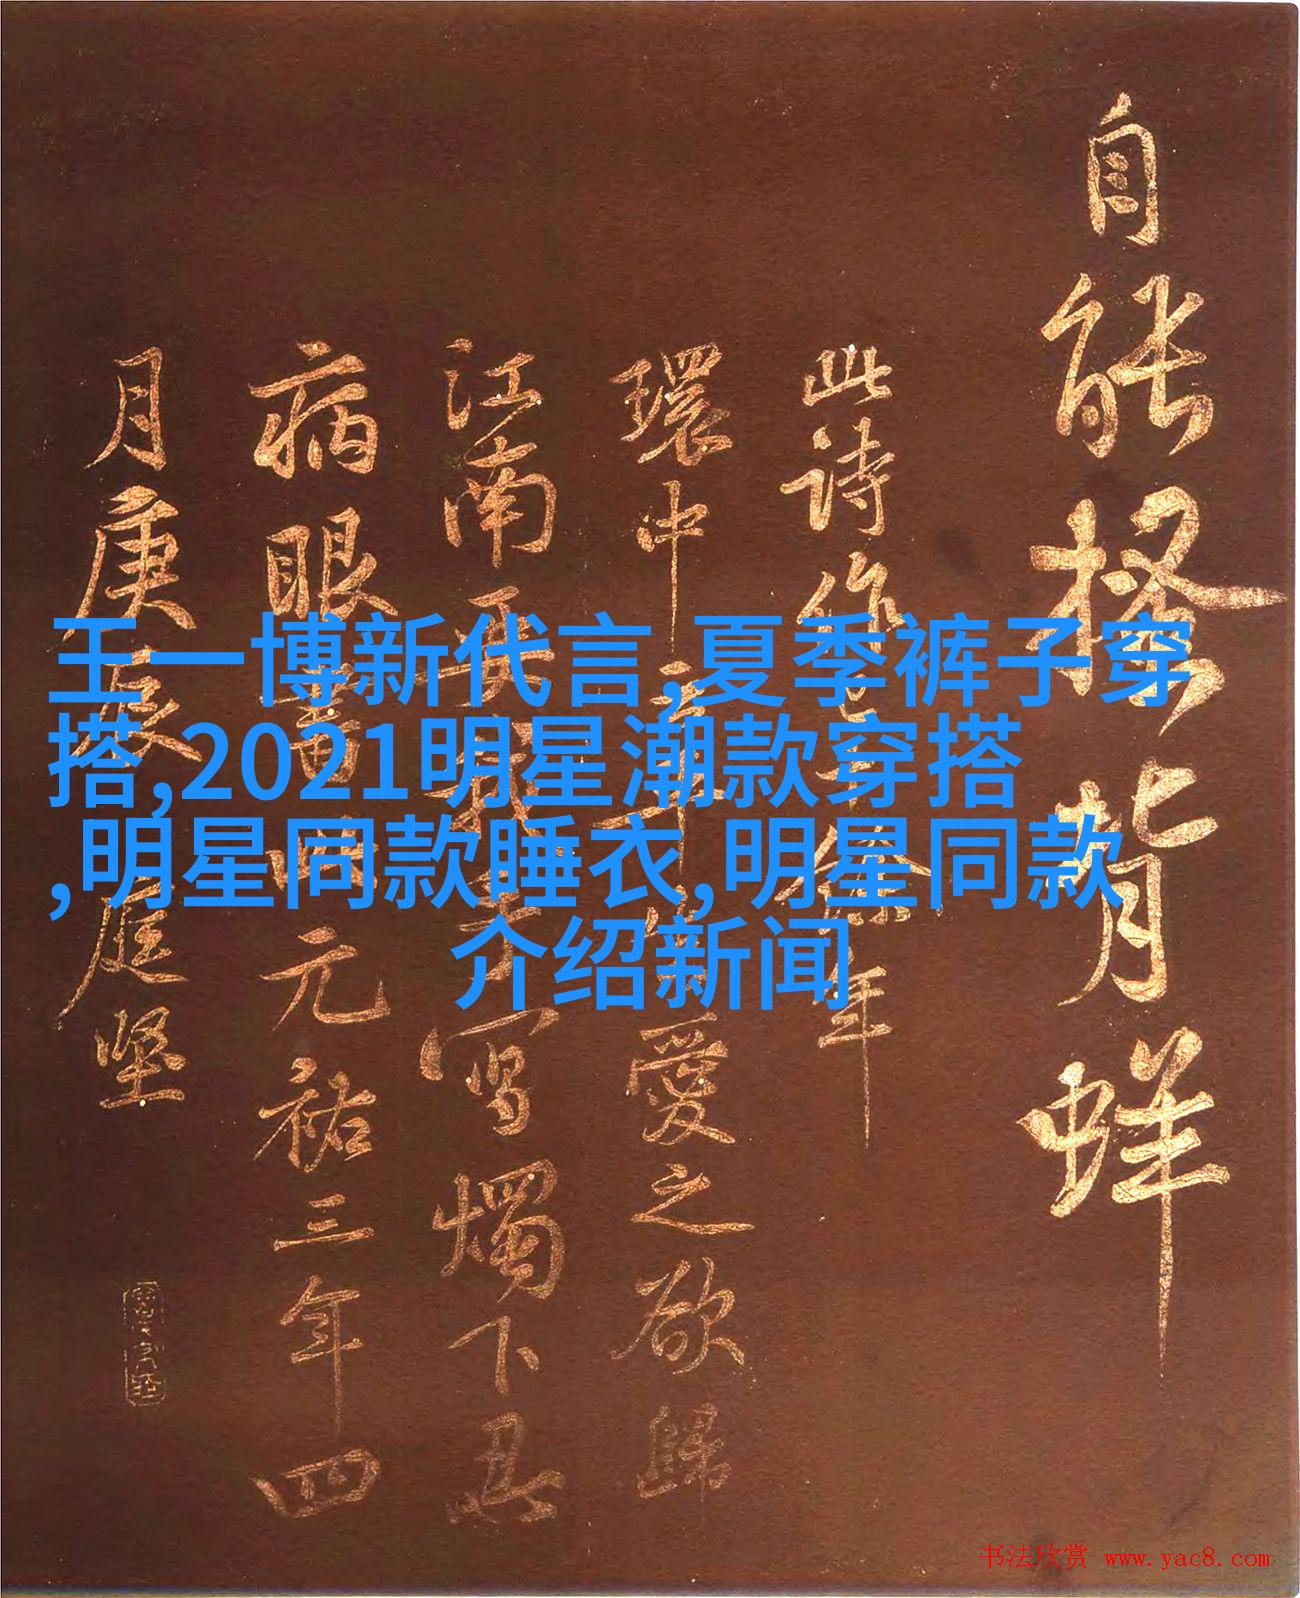 自能搔背蛘
此詩作 餘年
環中 愛之欲歸
江南 寫燭下忍
病眼 元祐三年四
月庚辰庭堅
王一博新代言,夏季裤子穿
搭,2021明星潮款穿搭
,明星同款睡衣,明星同款
介绍新闻
书法欣赏 www.yac8.com